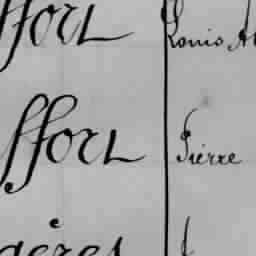 ffort Louis
ffort Pierre
gères